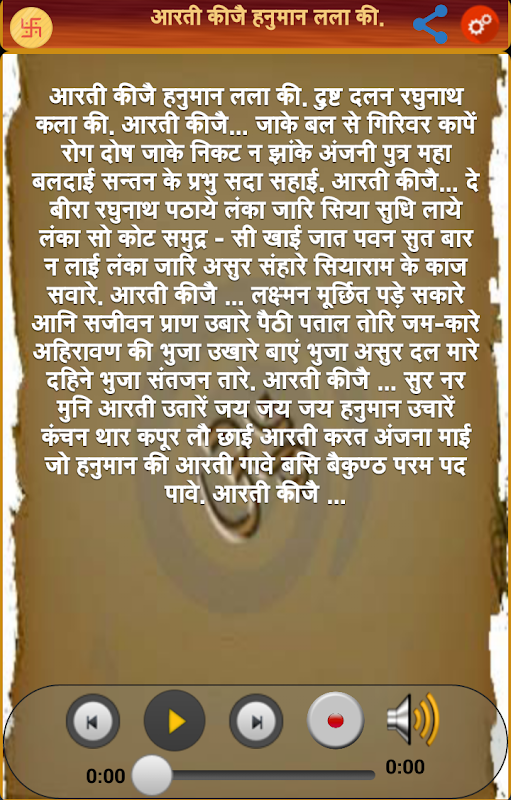 आरती कीजै हनुमान लला की.
आरती कीजै हनुमान लला की. दुष्ट दलन रघुनाथ
कला की. आरती कीजै... जाके बल से गिरिवर कापें
रोग दोष जाके निकट न झांके अंजनी पुत्र महा
बलदाई सन्तन के प्रभु सदा सहाई. आरती कीजै... दे
बीरा रघुनाथ पठाये लंका जारि सिया सुधि लाये
लंका सो कोट समुद्र - सी खाई जात पवन सुत बार
न लाई लंका जारि असुर संहारे सियाराम के काज
सवारे. आरती कीजै ... लक्ष्मन मूर्छित पड़े सकारे
आनि सजीवन प्राण उबारे पैठी पताल तोरि जम-कारे
अहिरावण की भुजा उखारे बाएं भुजा असुर दल मारे
दहिने भुजा संतजन तारे. आरती कीजै ... सुर नर
मुनि आरती उतारें जय जय जय हनुमान उचारें
कंचन थार कपूर लौ छाई आरती करत अंजना माई
जो हनुमान की आरती गावे बसि बैकुण्ठ परम पद
पावे. आरती कीजै ...
0:00
0:00